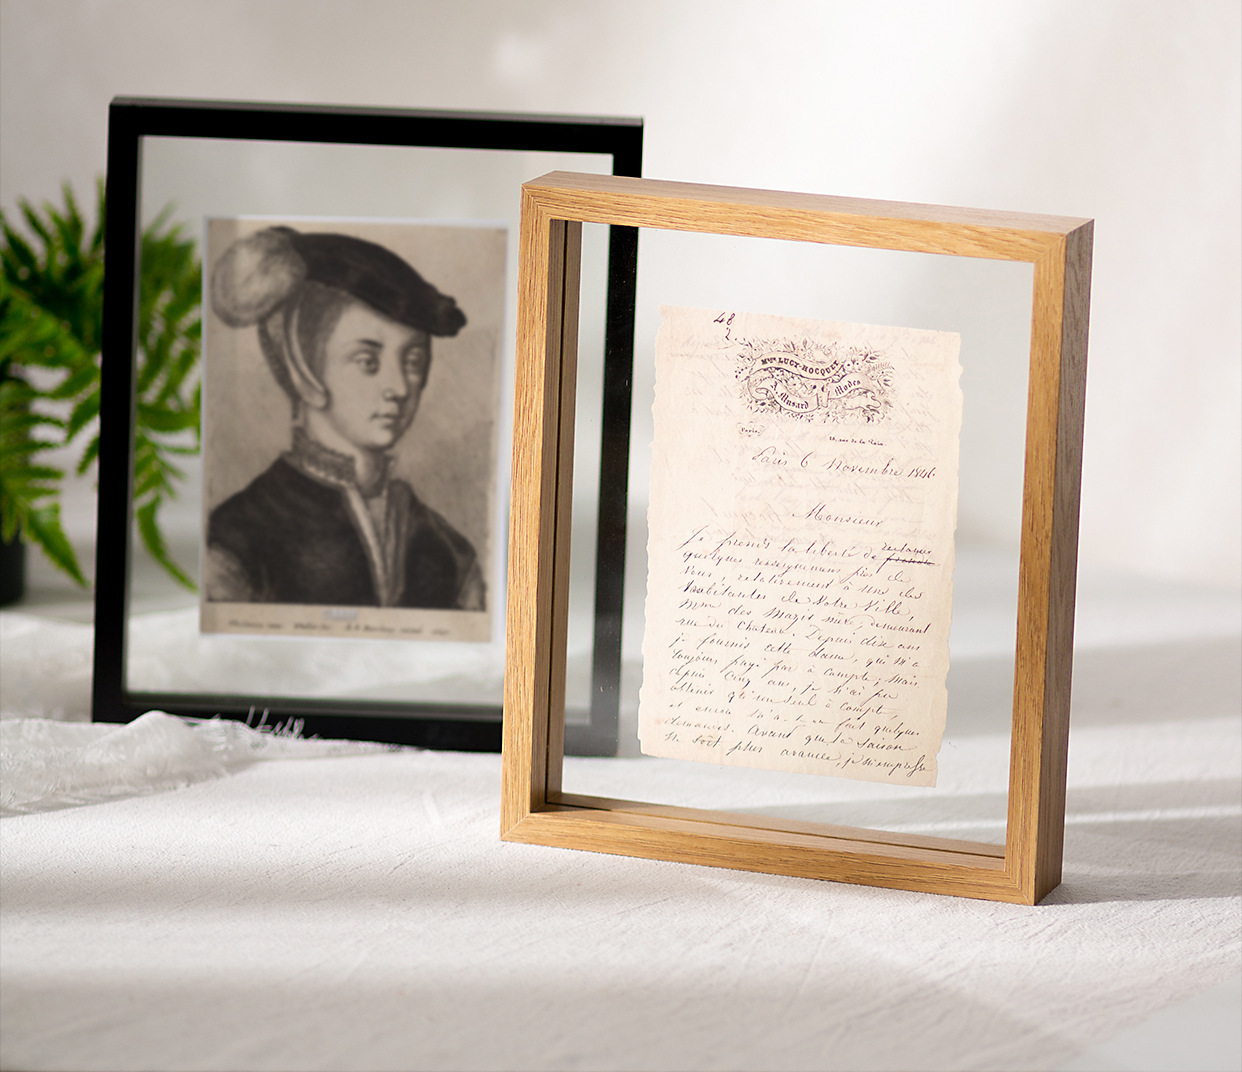 48
2.
Mme LUCY-HOCQUET
A. Musard Modes
Paris,
Paris 6 Novembre 1846.
Monsieur
Je prends la liberté de
quelques renseignemens près de
Vous, relativement à une des
habitantes de Notre Ville,
Mme des mère, demeurant
rue du Chateau. Depuis dix ans
je fournis cette Dame, qui m'a
toujours payé par à compte; mais
depuis cinq ans, je n'ai pu
obtenir qu'un seul à compte,
et encore m'a-t-on fait quelques
demandes. Avant que la saison
ne soit plus avancée, je m'empresse